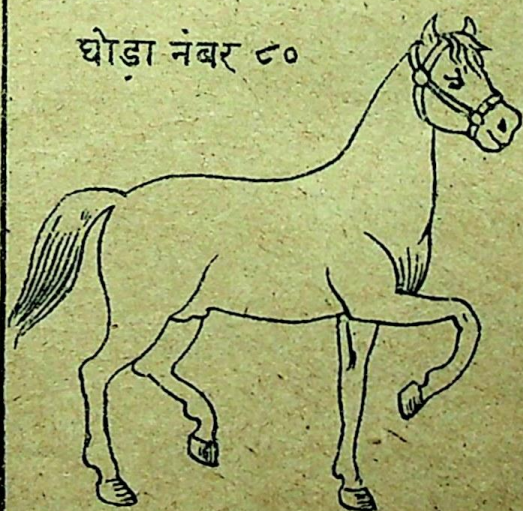 घोड़ा नंबर ८०